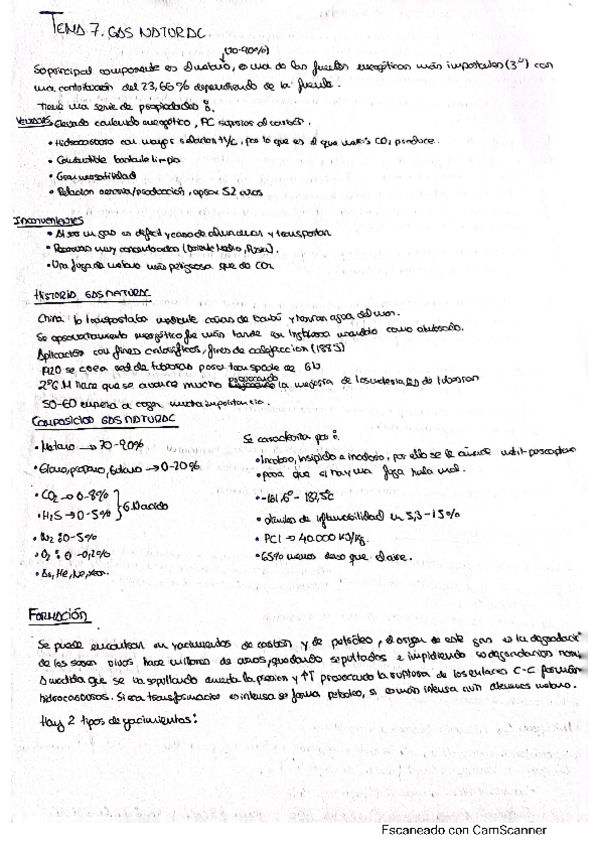 TEMA 7. GAS NATURAL
(70-90%)
Su principal componente es el metano, es una de las fuentes energéticas más importantes (3ª) con
una contribución del 23,66% dependiendo de la fuente.
Tiene una serie de propiedades:
Ventajas • Elevado contenido energético, PC superior al carbón.
• Hidrocarburo con mayor relación H/C, por lo que es el que menos CO2 produce.
• Combustible bastante limpio
• Gran versatilidad
• Relación reserva/producción, aprox 52 años
Inconvenientes
• Al ser un gas es difícil y caro de almacenar y transportar
• Reservas muy concentradas (Oriente Medio, Rusia).
• Una fuga de metano más peligrosa que de CO2
HISTORIA GAS NATURAL
China lo transportaba mediante cañas de bambú y hervían agua del mar.
Su aprovechamiento energético fue más tarde en Inglaterra usándolo como alumbrado.
Aplicación con fines caloríficos, fines de calefacción (1885)
1920 se crea red de tuberías para transporte de GN
2ª G.M hace que se avance mucho la mejoría de los materiales de tuberías
50-60 empieza a coger mucha importancia.
COMPOSICIÓN GAS NATURAL
• Metano → 70-90%
• Etano, propano, butano → 0-20%
• CO2 → 0-8%
• H2S → 0-5% } G. Ácido
• N2: 0-5%
• O2: 0-0,2%
• Ar, He, Ne, Xe.
Se caracteriza por:
• Incoloro, insípido e inodoro, por ello se le añade metil-mercaptano
• para que si hay una fuga huela mal.
• -161,6º - 182,5ºC
• límites de inflamabilidad en 5,3-15%
• PCI → 40.000 KJ/Kg.
• 65% menos denso que el aire.
FORMACIÓN
Se puede encontrar en yacimientos de carbón y de petróleo, el origen de este gas es la degradación
de los seres vivos hace millones de años, quedando sepultados e impidiendo su degradación
A medida que se va sepultando aumenta la presión y ↑T provocando la ruptura de los enlaces C-C formando
hidrocarburos. Si esa transformación es intensa se forma petróleo, si es más intensa aún obtenemos metano.
Hay 2 tipos de yacimientos:
Escaneado con CamScanner